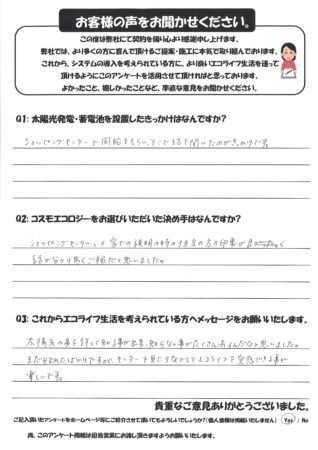 お客様の声をお聞かせください。
この度は弊社にて契約を賜り心より感謝申し上げます。
弊社では、より多くの方に喜んで頂けるご提案・施工に本気で取り組んでおります。
これから、システムの導入を考えられている方に、より良いエコライフ生活を送って
頂けるようにこのアンケートを活用させて頂ければと思っております。
よかったこと、嬉しかったことなど、率直な意見をお聞かせください。
Q1: 太陽光発電・蓄電池を設置したきっかけはなんですか?
ショッピングセンターで用紙をもらい、そこで話を聞いたのがきっかけです。
Q2: コスモエコロジーをお選びいただいた決め手はなんですか?
ショッピングセンター 家での説明の時の担当の方の印象が良く
話がかなり
思いました。
Q3: これからエコライフ生活を考えられている方へメッセージをお願いいたします。
太陽光の事を詳しく知る事が出来、知らない事がたくさんあるんだなと思いました。
まだ始めたばかりですが、モニターを見たりなどしてエコライフを実感できる事が
楽しいです。
貴重なご意見ありがとうございました。
ご記入頂いたアンケートをホームページ等にご紹介させて頂いてもよろしいでしょうか?(個人情報は掲載いたしません) Yes / No
尚、このアンケート用紙は担当営業にお渡し頂きますようお願いいたします。